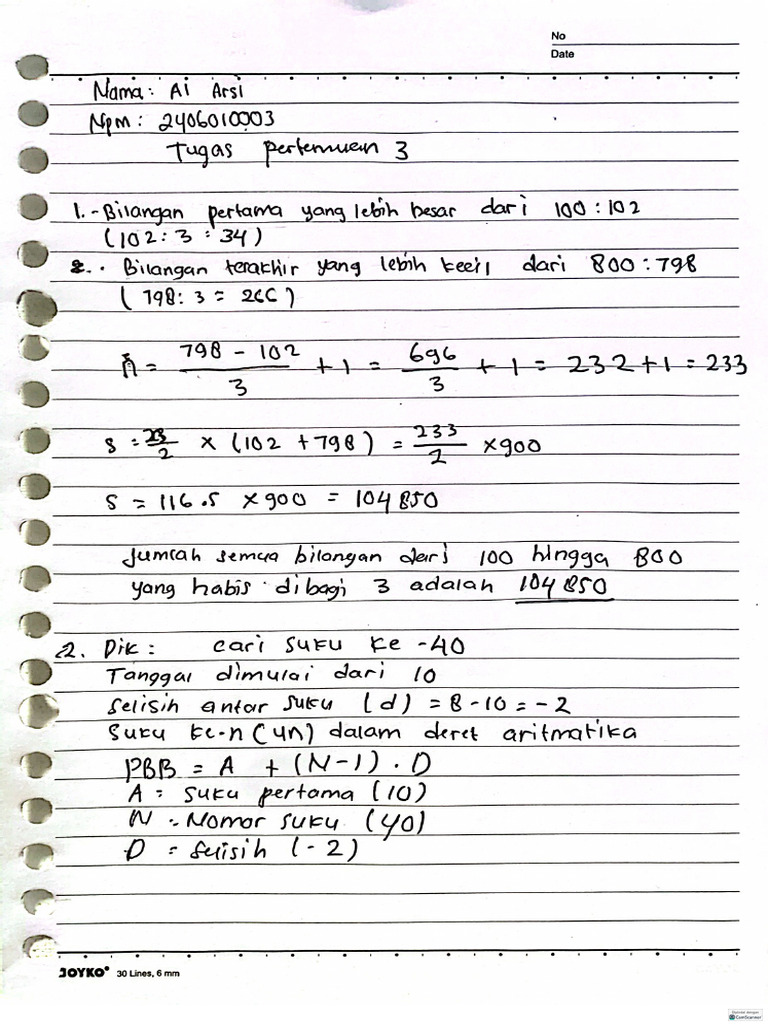 No
Date
Nama: Al Arsi
Npm: 2406010003
Tugas pertemuan 3
1. - Bilangan pertama yang lebih besar dari 100 : 102
(102 : 3 = 34)
2. . Bilangan terakhir yang lebih kecil dari 800 : 798
( 798 : 3 = 266 )
n = 798 - 102 / 3 + 1 = 696 / 3 + 1 = 232 + 1 = 233
S = 233 / 2 x (102 + 798) = 233 / 2 x 900
S = 116.5 x 900 = 104850
Jumlah semua bilangan dari 100 hingga 800
yang habis dibagi 3 adalah 104850
2. Dik: cari suku ke -40
Tanggal dimulai dari 10
Selisih antar suku (d) = 8 - 10 = -2
Suku ke-n (Un) dalam deret aritmatika
PBB = A + (N-1) . D
A = suku pertama (10)
N = Nomor suku (40)
D = selisih (-2)
JOYKO 30 Lines, 6 mm
CamScanner